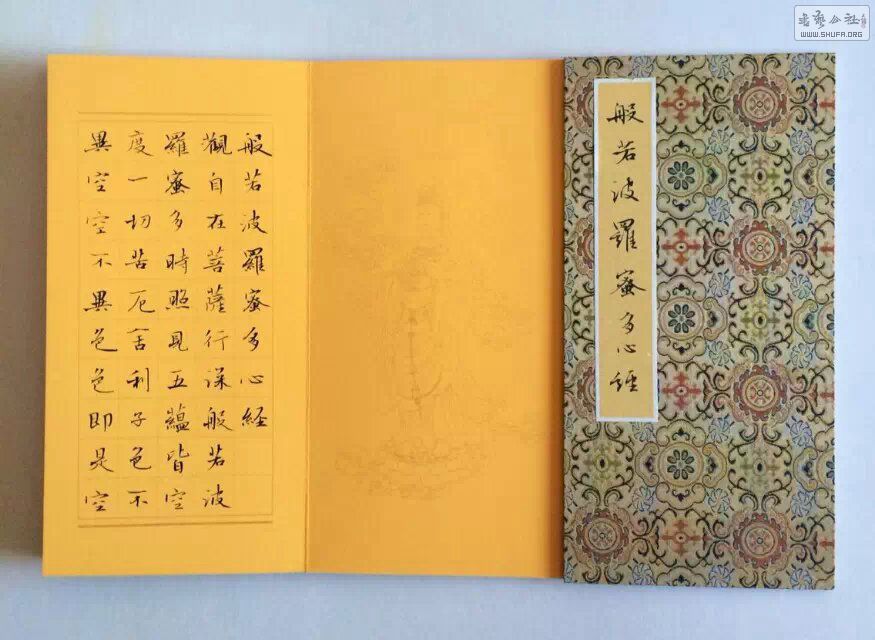 般若波羅蜜多心經
般若波羅蜜多心経
觀自在菩薩行深般若波
羅蜜多時照見五蘊皆空
度一切苦厄舍利子色不
異空空不異色色即是空
書藝公社
WWW.SHUFA.ORG